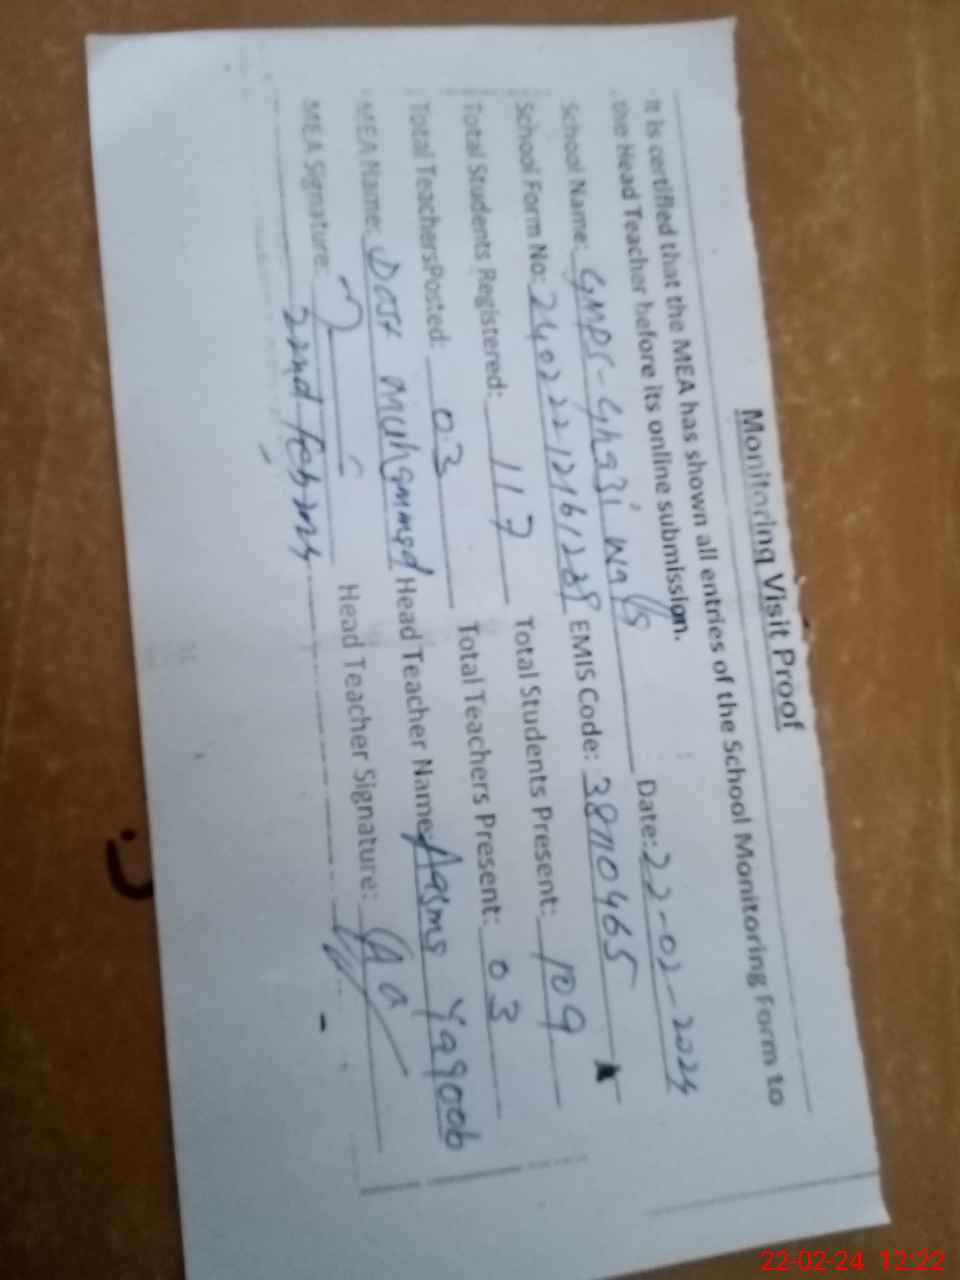 Monitoring Visit Proof
It is certified that the MEA has shown all entries of the School Monitoring Form to
the Head Teacher before its online submission.
School Name: GMPS-Ghazi Wala Date: 22-02-2024
School Form No: EMIS Code: 38710465
Total Students Registered: 117 Total Students Present: 109
Total TeachersPosted: 03 Total Teachers Present: 03
MEA Name: Dost Muhammad Head Teacher Name: Aasma Yaqoob
MEA Signature: Head Teacher Signature:
22nd Feb 2024
22-02-24 12:22